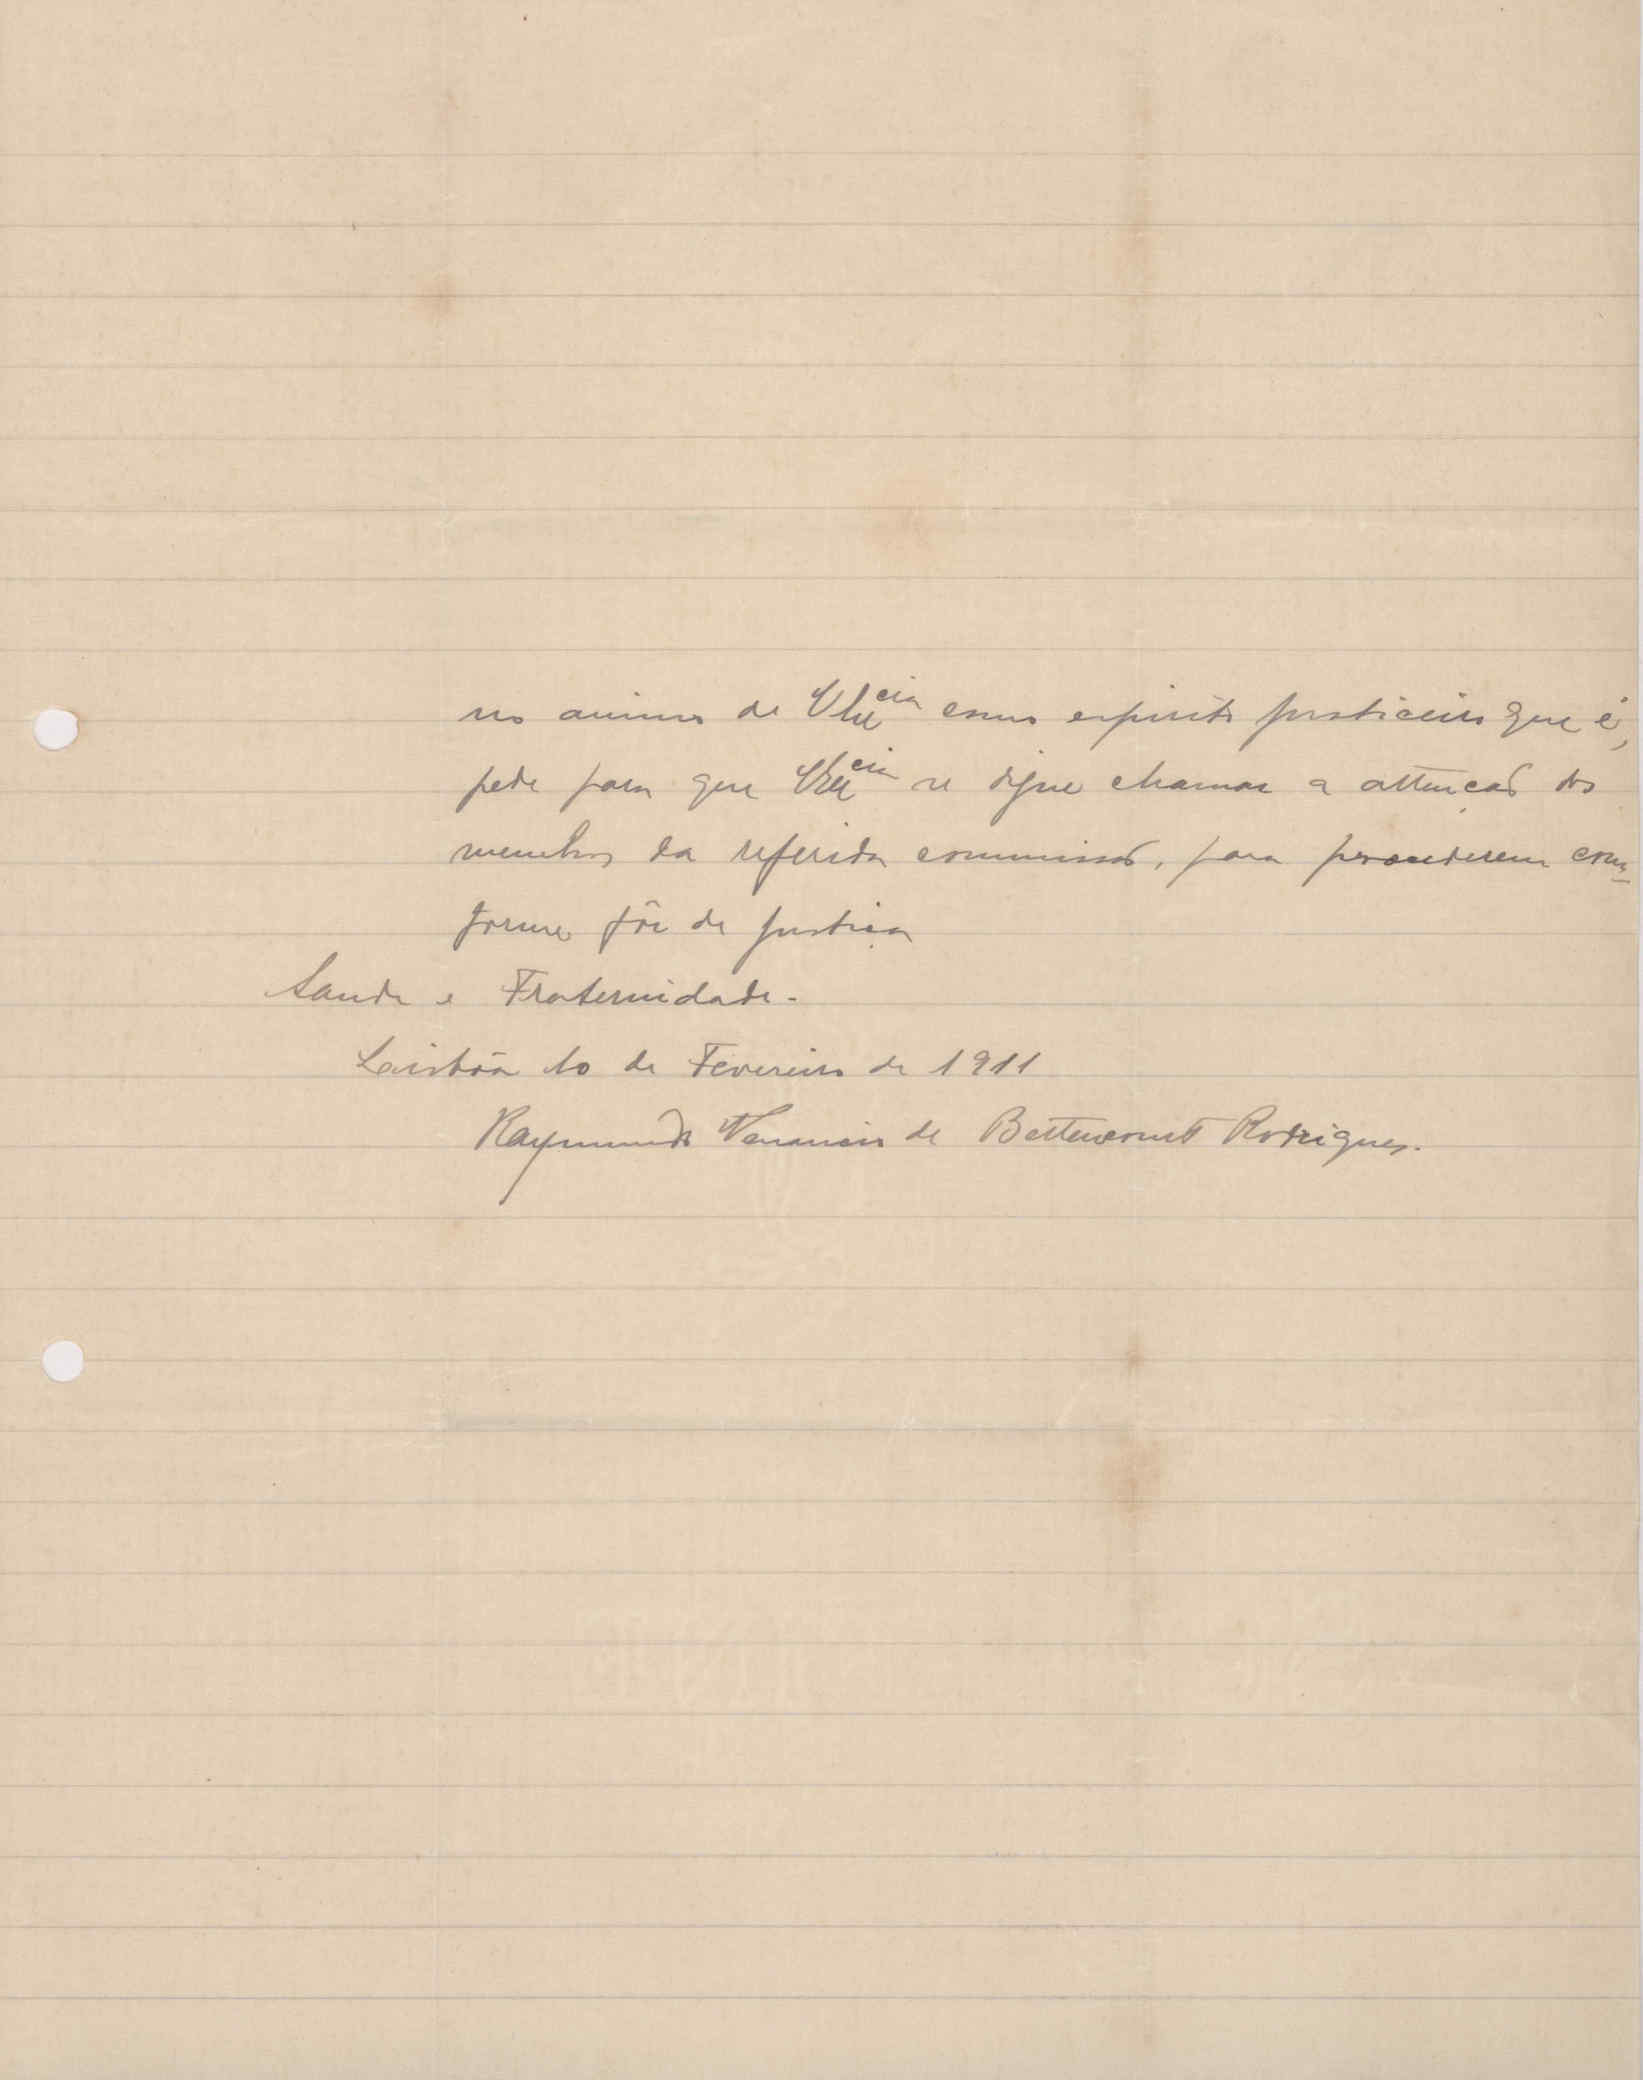 no animo de VEx.cia como espirito justiceiro que é,
pede para que VEx.cia se digne chamar a attenção dos
membros da referida commissão, para procederem con-
forme fôr de justiça
Saude e Fraternidade.
Lisbôa 10 de Fevereiro de 1911
Raymundo Venancio de Bettencourt Rodrigues.